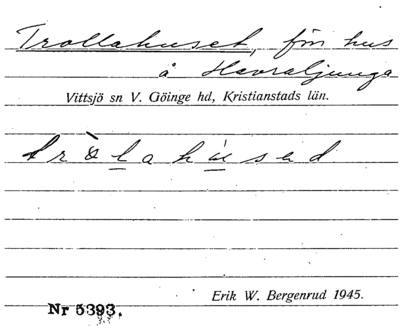 Trollahuset, förr hus
å Havraljunga
Vittsjö sn V. Göinge hd, Kristianstads län.
tròlahùsəd
Erik W. Bergenrud 1945.
Nr 5393.